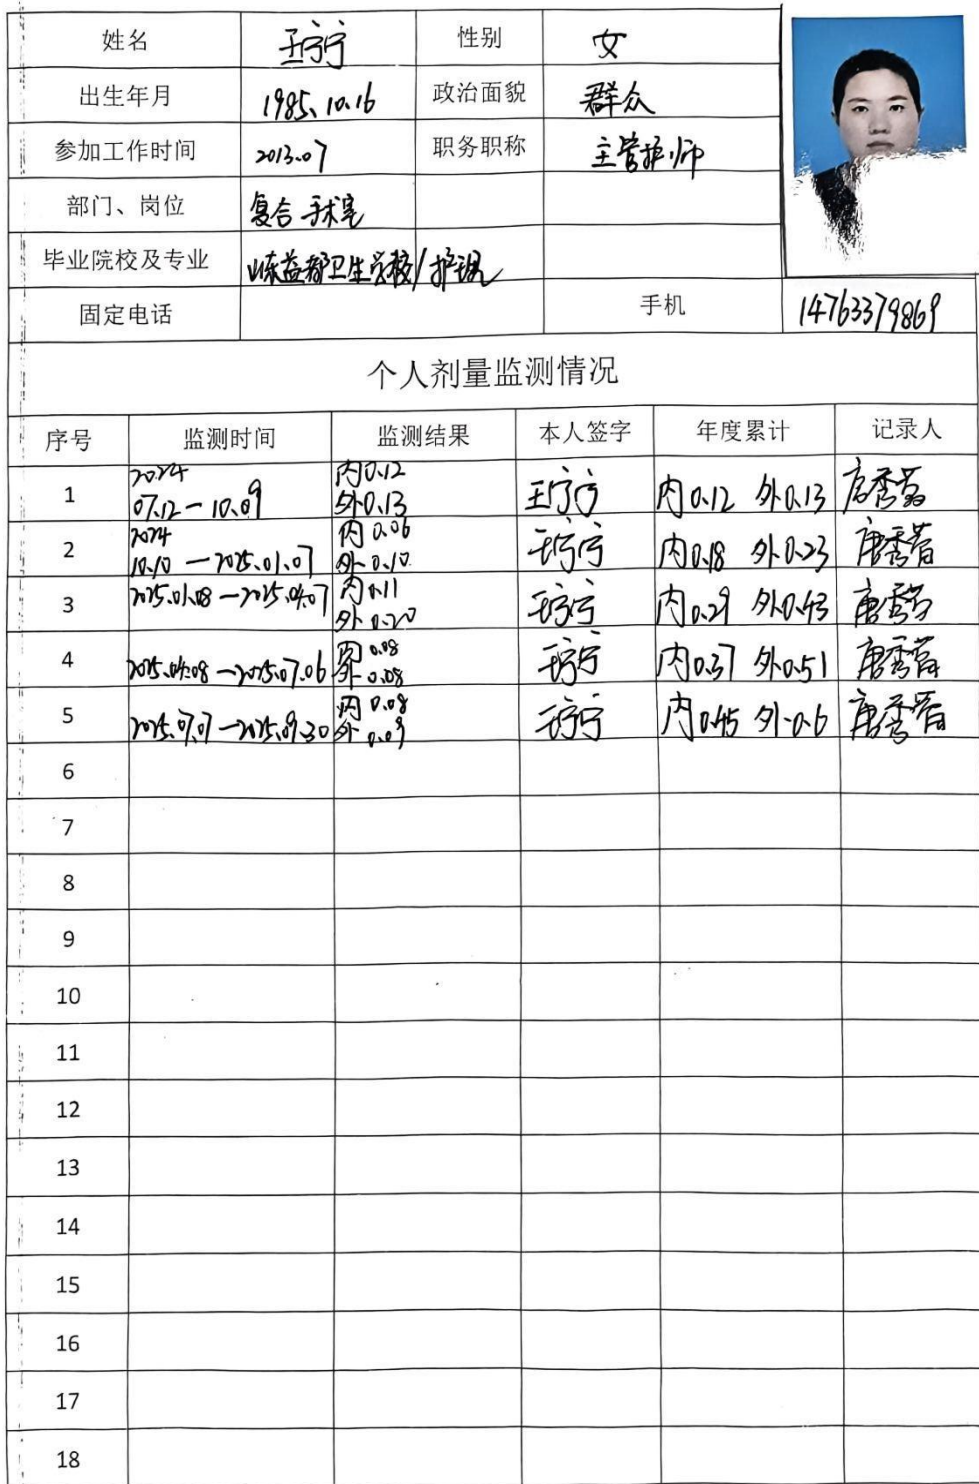 姓名 王宁宁 性别 女
出生年月 1985.10.16 政治面貌 群众
参加工作时间 2013.07 职务职称 主管护师
部门、岗位 复合手术室
毕业院校及专业 山东益都卫生学校/护理
固定电话 手机 14763379869
个人剂量监测情况
序号 监测时间 监测结果 本人签字 年度累计 记录人
1 2024 07.12-10.09 内0.12 外0.13 王宁宁 内0.12 外0.13
2 2024 10.10-2025.01.07 内0.06 外0.10 王宁宁 内0.18 外0.23
3 2025.01.08-2025.04.07 内0.11 外0.20 王宁宁 内0.29 外0.43
4 2025.04.08-2025.07.06 内0.08 外0.08 王宁宁 内0.37 外0.51
5 2025.07.07-2025.09.30 内0.08 外0.09 王宁宁 内0.45 外0.6
6
7
8
9
10
11
12
13
14
15
16
17
18